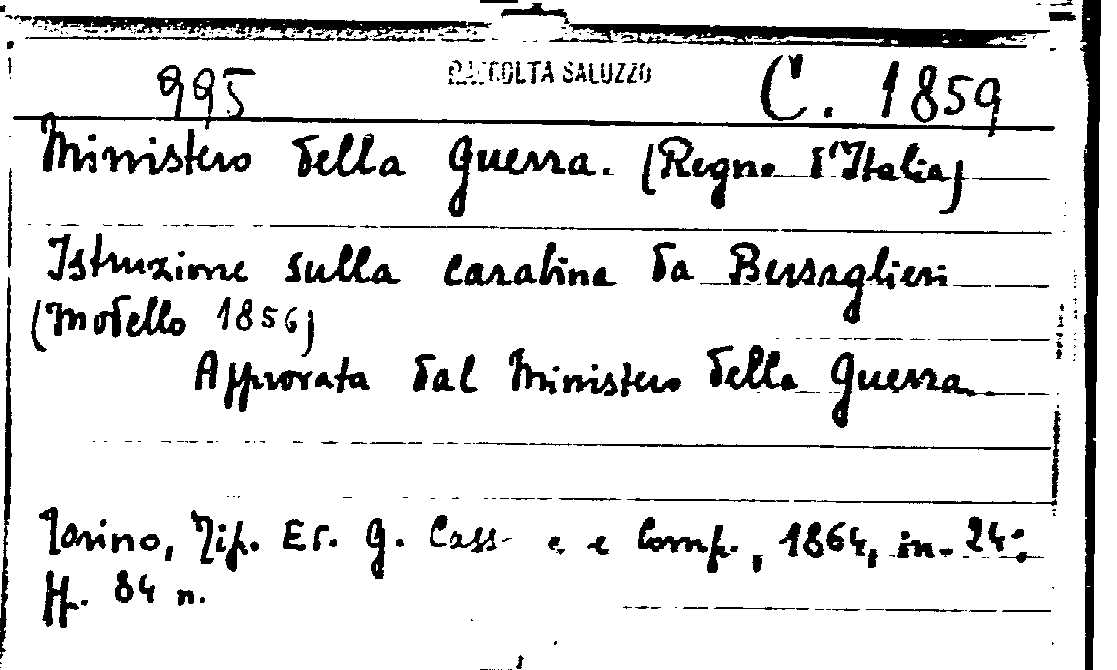 995 RACCOLTA SALUZZO C. 1859
Ministero della Guerra. (Regno d'Italia)
Istruzione sulla carabina da Bersaglieri
(Modello 1856)
Approvata dal Ministero della Guerra.
Torino, Tip. Er. G. Cass e e Comp., 1864, in-24°;
ff. 84 n.